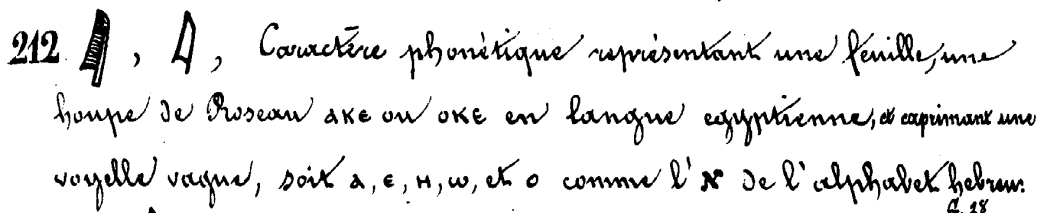 212 𓇋, 𓇋, Caractère phonétique représentant une feuille, une
houpe de Roseau ⲁⲕⲉ ou ⲟⲕⲉ en langue egyptienne, et exprimant une
voyelle vague, soit ⲁ, ⲉ, ⲏ, ⲱ, et ⲟ comme l'א de l'alphabet hebreu.
G. 28